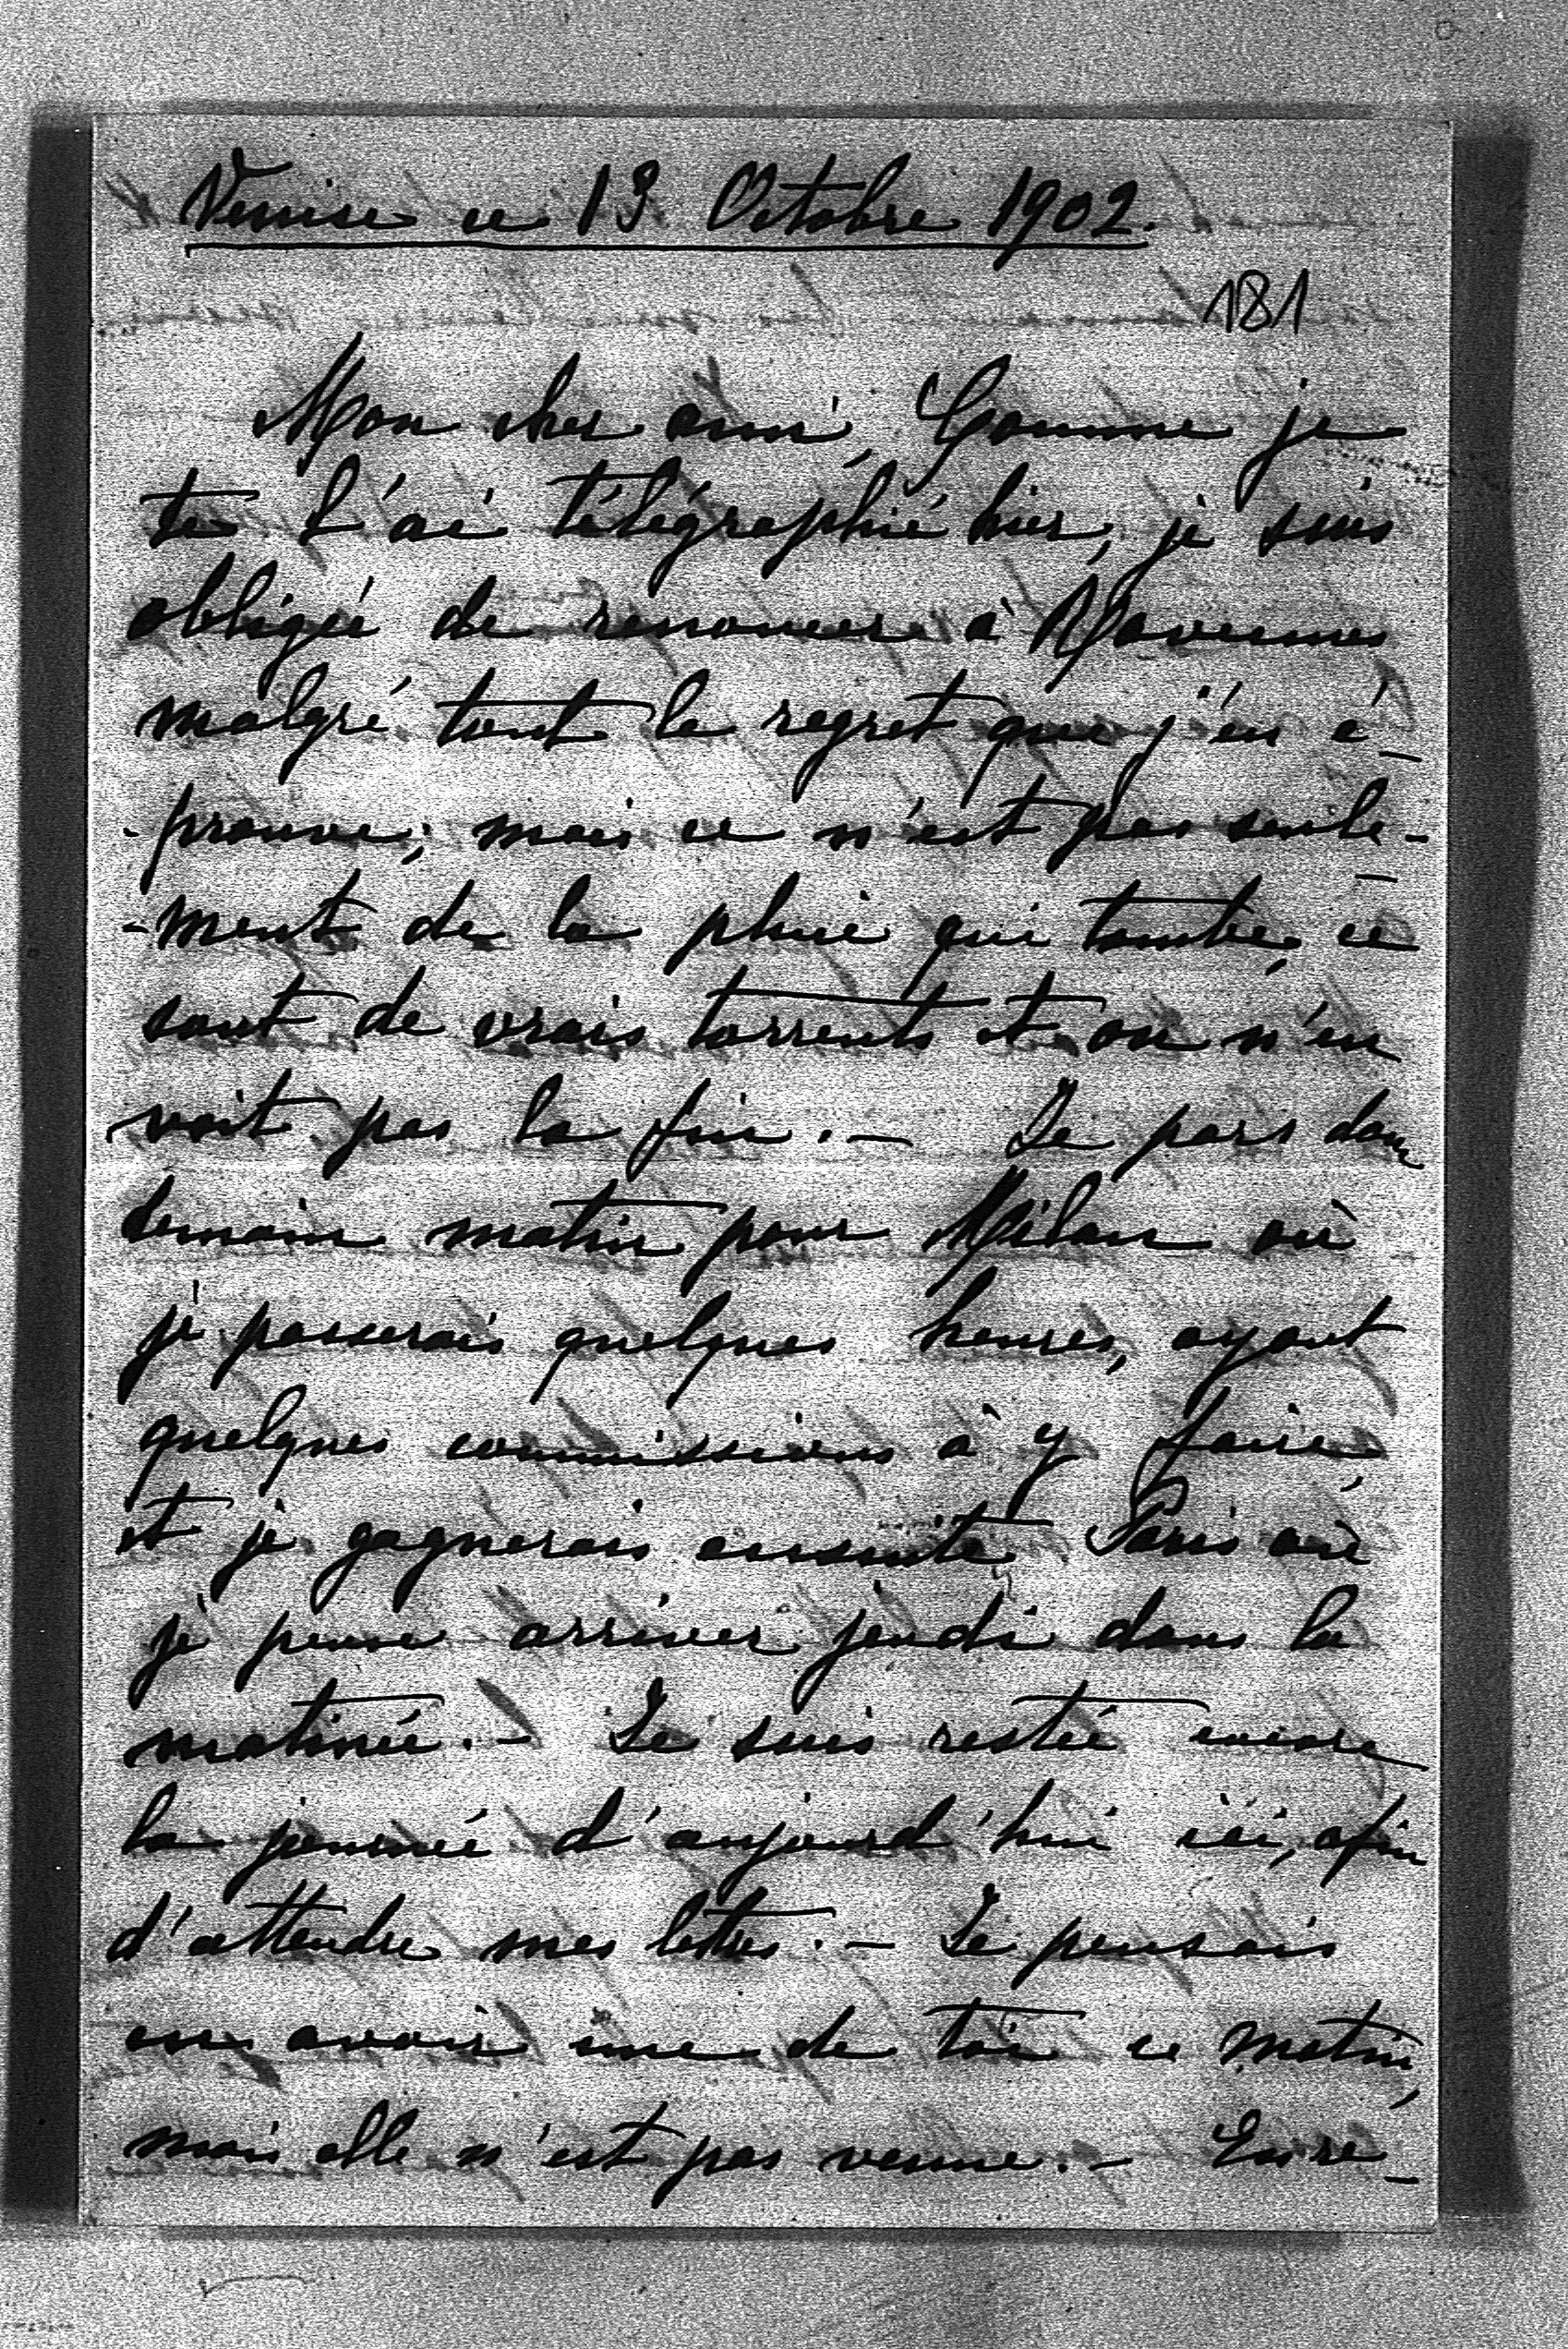 Venise ce 13 Octobre 1902.
181
Mon cher ami, Comme je
te l'ai télégraphié hier, je suis
obligée de renoncer à Ravennes
malgré tout le regret que j'en é-
-prouve; mais ce n'est pas seule-
-ment de la pluie qui tombe, ce
sont de vrais torrents et on n'en
voit pas la fin. — Je pars donc
demain matin pour Milan où
je passerais quelques heures, ayant
quelques commissions à y faire,
et je gagnerais ensuite Paris où
je pense arriver jeudi dans la
matinée. — Je suis restée encore
la journée d'aujourd'hui ici, afin
d'attendre mes lettres. — Je pensais
en avoir une de toi ce matin,
mais elle n'est pas venue. —